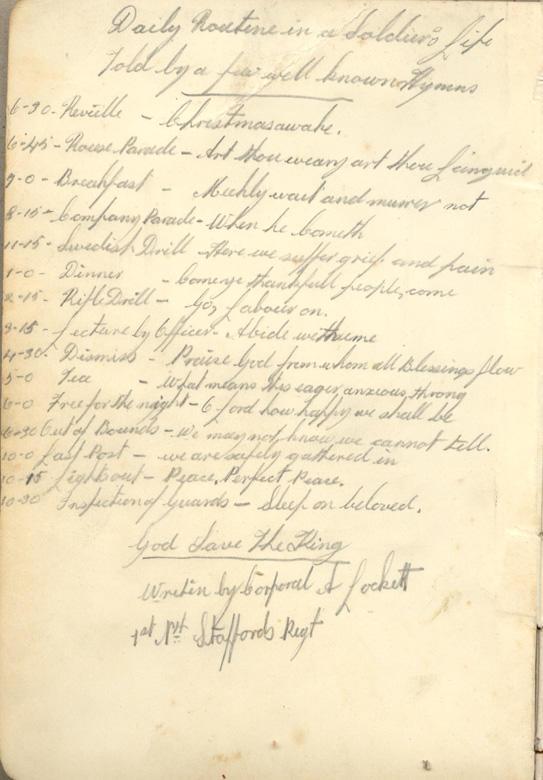 Daily Routine in a Soldier's Life
Told by a few well known Hymns
6-30 - Reveille - Christmas awake.
6-45 - Rouse Parade - Art thou weary art thou Languid
- Breakfast - Meekly wait and murmer not
8-15 - Company Parade - When he Cometh
11-15 - Swedish Drill - Here we suffer grief and pain
1-0 - Dinner - Come ye thankfull people, come
2-15 - Rifle Drill - Go, Labour on.
3-15 - Lecture by Officer - Abide with me
4-30. Dismiss - Praise God from whom all Blessings flow
5-0 Tea - What means this eager, anxious, throng
6-0 Free for the night - O Lord how happy we shall be
6-30 Out of Bounds - We may not know, we cannot tell.
10-0 Last Post - we are safely gathered in
10-15 Lights out - Peace, Perfect Peace.
10-30 Inspection of Guards - Sleep on beloved.
God Save The King
Writtin by Corporal A Lockett
1st Nth Staffords Regt